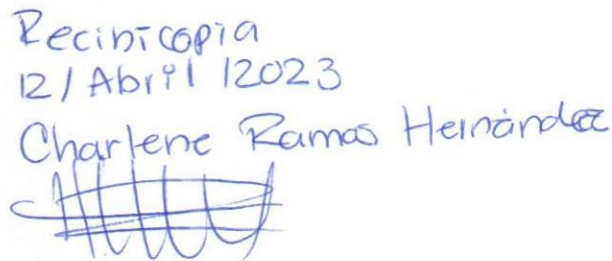 Recibi copia
12/Abril/2023
Charlene Ramos Hernández